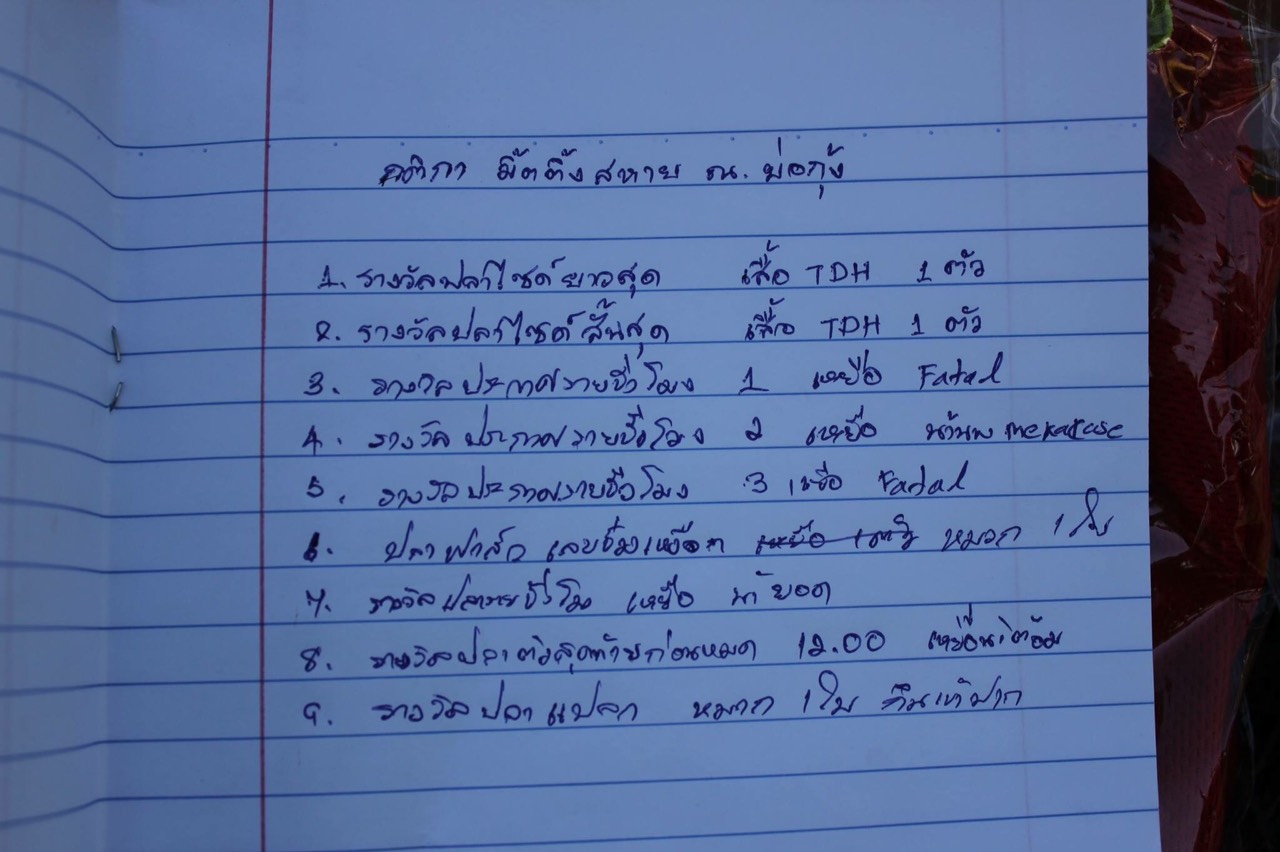 กติกา มิ๊ตติ้งสหาย ณ. บ่อกุ้ง
1. รางวัลปลาไซด์ยาวสุด เสื้อ TDH 1 ตัว
2. รางวัลปลาไซด์สั้นสุด เสื้อ TDH 1 ตัว
3. รางวัลประกาศรายชั่วโมง 1 เหยื่อ Fatal
4. รางวัลประกาศรายชั่วโมง 2 เหยื่อ
5. รางวัลประกาศรายชั่วโมง 3 เหยื่อ Fatal
6. ปลา หมวก 1 ใบ
7. รางวัลปลารายชั่วโมง เหยื่อ น้ายอด
8. รางวัลปลาตัวสุดท้ายก่อนหมด 12.00
9. รางวัลปลาแปลก หมวก 1 ใบ